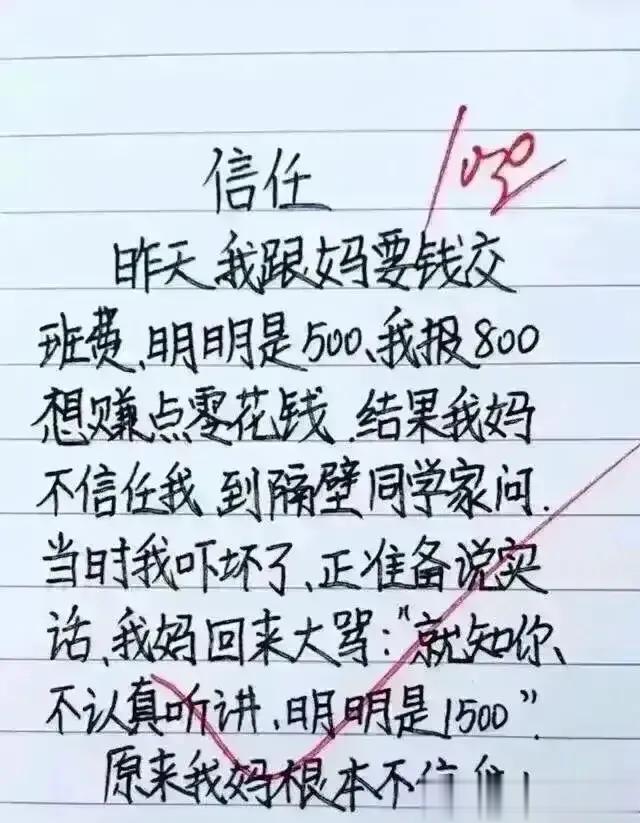 信任
100
昨天我跟妈要钱交
班费,明明是500、我报800
想赚点零花钱.结果我妈
不信任我 到隔壁同学家问.
当时我吓坏了、正准备说实
话、我妈回来大骂:“就知你、
不认真听讲、明明是1500”
原来我妈根本不